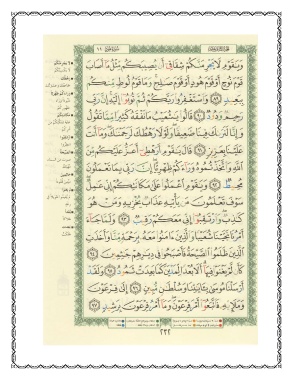 وَيَٰقَوۡمِ لَا يَجۡرِمَنَّكُمۡ شِقَاقِيٓ أَن يُصِيبَكُم مِّثۡلُ مَآ أَصَابَ
قَوۡمَ نُوحٍ أَوۡ قَوۡمَ هُودٍ أَوۡ قَوۡمَ صَٰلِحٖۚ وَمَا قَوۡمُ لُوطٖ مِّنكُم
بِبَعِيدٖ ٨٩ وَٱسۡتَغۡفِرُواْ رَبَّكُمۡ ثُمَّ تُوبُوٓاْ إِلَيۡهِۚ إِنَّ رَبِّي
رَحِيمٞ وَدُودٞ ٩٠ قَالُواْ يَٰشُعَيۡبُ مَا نَفۡقَهُ كَثِيرٗا مِّمَّا تَقُولُ
وَإِنَّا لَنَرَىٰكَ فِينَا ضَعِيفٗاۖ وَلَوۡلَا رَهۡطُكَ لَرَجَمۡنَٰكَۖ وَمَآ أَنتَ
عَلَيۡنَا بِعَزِيزٖ ٩١ قَالَ يَٰقَوۡمِ أَرَهۡطِيٓ أَعَزُّ عَلَيۡكُم مِّنَ
ٱللَّهِ وَٱتَّخَذۡتُمُوهُ وَرَآءَكُمۡ ظِهۡرِيًّاۖ إِنَّ رَبِّي بِمَا تَعۡمَلُونَ
مُحِيطٞ ٩٢ وَيَٰقَوۡمِ ٱعۡمَلُواْ عَلَىٰ مَكَانَتِكُمۡ إِنِّي عَٰمِلٞۖ
سَوۡفَ تَعۡلَمُونَ مَن يَأۡتِيهِ عَذَابٞ يُخۡزِيهِ وَمَنۡ هُوَ
كَٰذِبٞۖ وَٱرۡتَقِبُوٓاْ إِنِّي مَعَكُمۡ رَقِيبٞ ٩٣ وَلَمَّا جَآءَ
أَمۡرُنَا نَجَّيۡنَا شُعَيۡبٗا وَٱلَّذِينَ ءَامَنُواْ مَعَهُۥ بِرَحۡمَةٖ مِّنَّا وَأَخَذَتِ
ٱلَّذِينَ ظَلَمُواْ ٱلصَّيۡحَةُ فَأَصۡبَحُواْ فِي دِيَٰرِهِمۡ جَٰثِمِينَ ٩٤
كَأَن لَّمۡ يَغۡنَوۡاْ فِيهَآۗ أَلَا بُعۡدٗا لِّمَدۡيَنَ كَمَا بَعِدَتۡ ثَمُودُ ٩٥ وَلَقَدۡ
أَرۡسَلۡنَا مُوسَىٰ بِـَٔايَٰتِنَا وَسُلۡطَٰنٖ مُّبِينٍ ٩٦ إِلَىٰ فِرۡعَوۡنَ
وَمَلَإِيْهِۦ فَٱتَّبَعُوٓاْ أَمۡرَ فِرۡعَوۡنَۖ وَمَآ أَمۡرُ فِرۡعَوۡنَ بِرَشِيدٖ ٩٧
٢٣٢